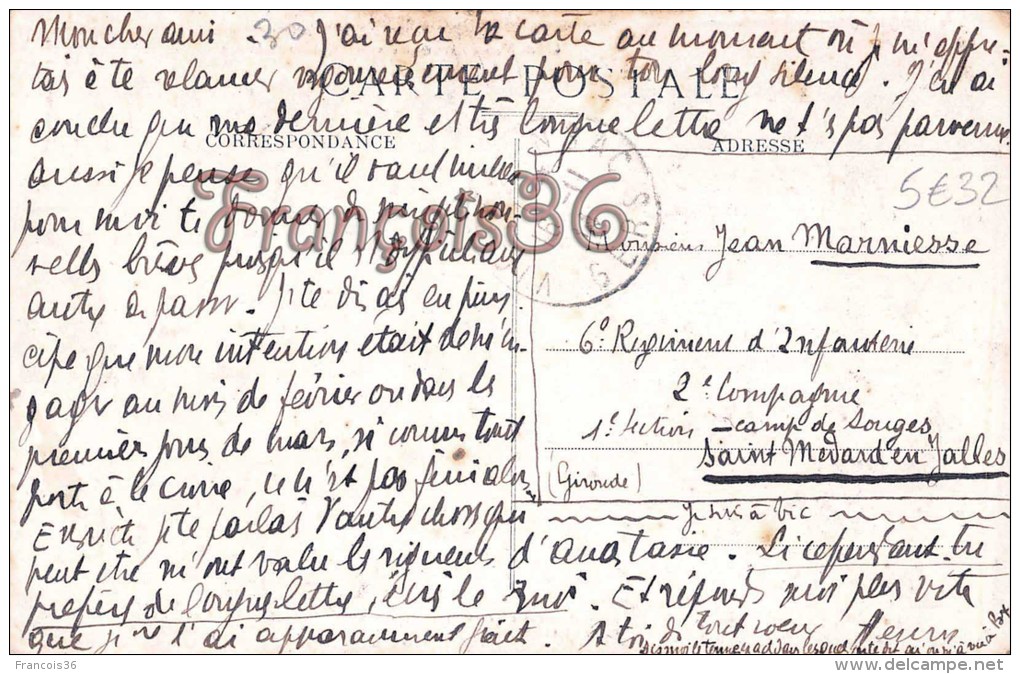 Mon cher ami. 30 J'ai reçu ta carte au moment où je m'apprê-
tais à te relancer vigoureusement pour ton long silence. J'en ai
CARTE POSTALE
conclu que ma dernière et très longue lettre ne t'es pas parvenue
CORRESPONDANCE
aussi je pense qu'il vaut mieux
pour moi te donner de
brèves jusqu'à
autre de passer. Je te disais en prin-
cipe que mon intention était de m'en-
gager au mois de février ou dans les
premiers jours de mars, si comme tout
porte à le croire, ce n'est pas fini alors
Ensuite je te parlais d'autres choses qui
peut être m'ont valu les rigueurs d'anastasie. Si cependant tu
préfères de longues lettres, écris le moi. Et réponds moi plus vite
que je ne l'ai apparemment fait. A toi de tout coeur
ADRESSE
5€32
Monsieur Jean Marniesse
6e Régiment d'Infanterie
2e Compagnie
1e Section - camp de Souges
Saint Médard en Jalles
(Gironde)
Je suis à Vic
GERS
François36
François36
delcampe.net